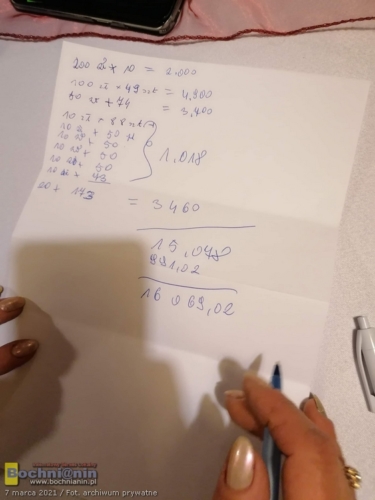 200 zł × 10 = 2.000
100 zł × 49 szt = 4.900
50 zł + 74 = 3,400
10 zł × 88 szt
10 zł + 50
10 zł + 50
10 zł + 50
10 zł + 50
43
1.018
20 + 173 = 3460
15,078
991,02
16 069,02
Bochni@nin
www.bochnianin.pl
7 marca 2021 / Fot. archiwum prywatne